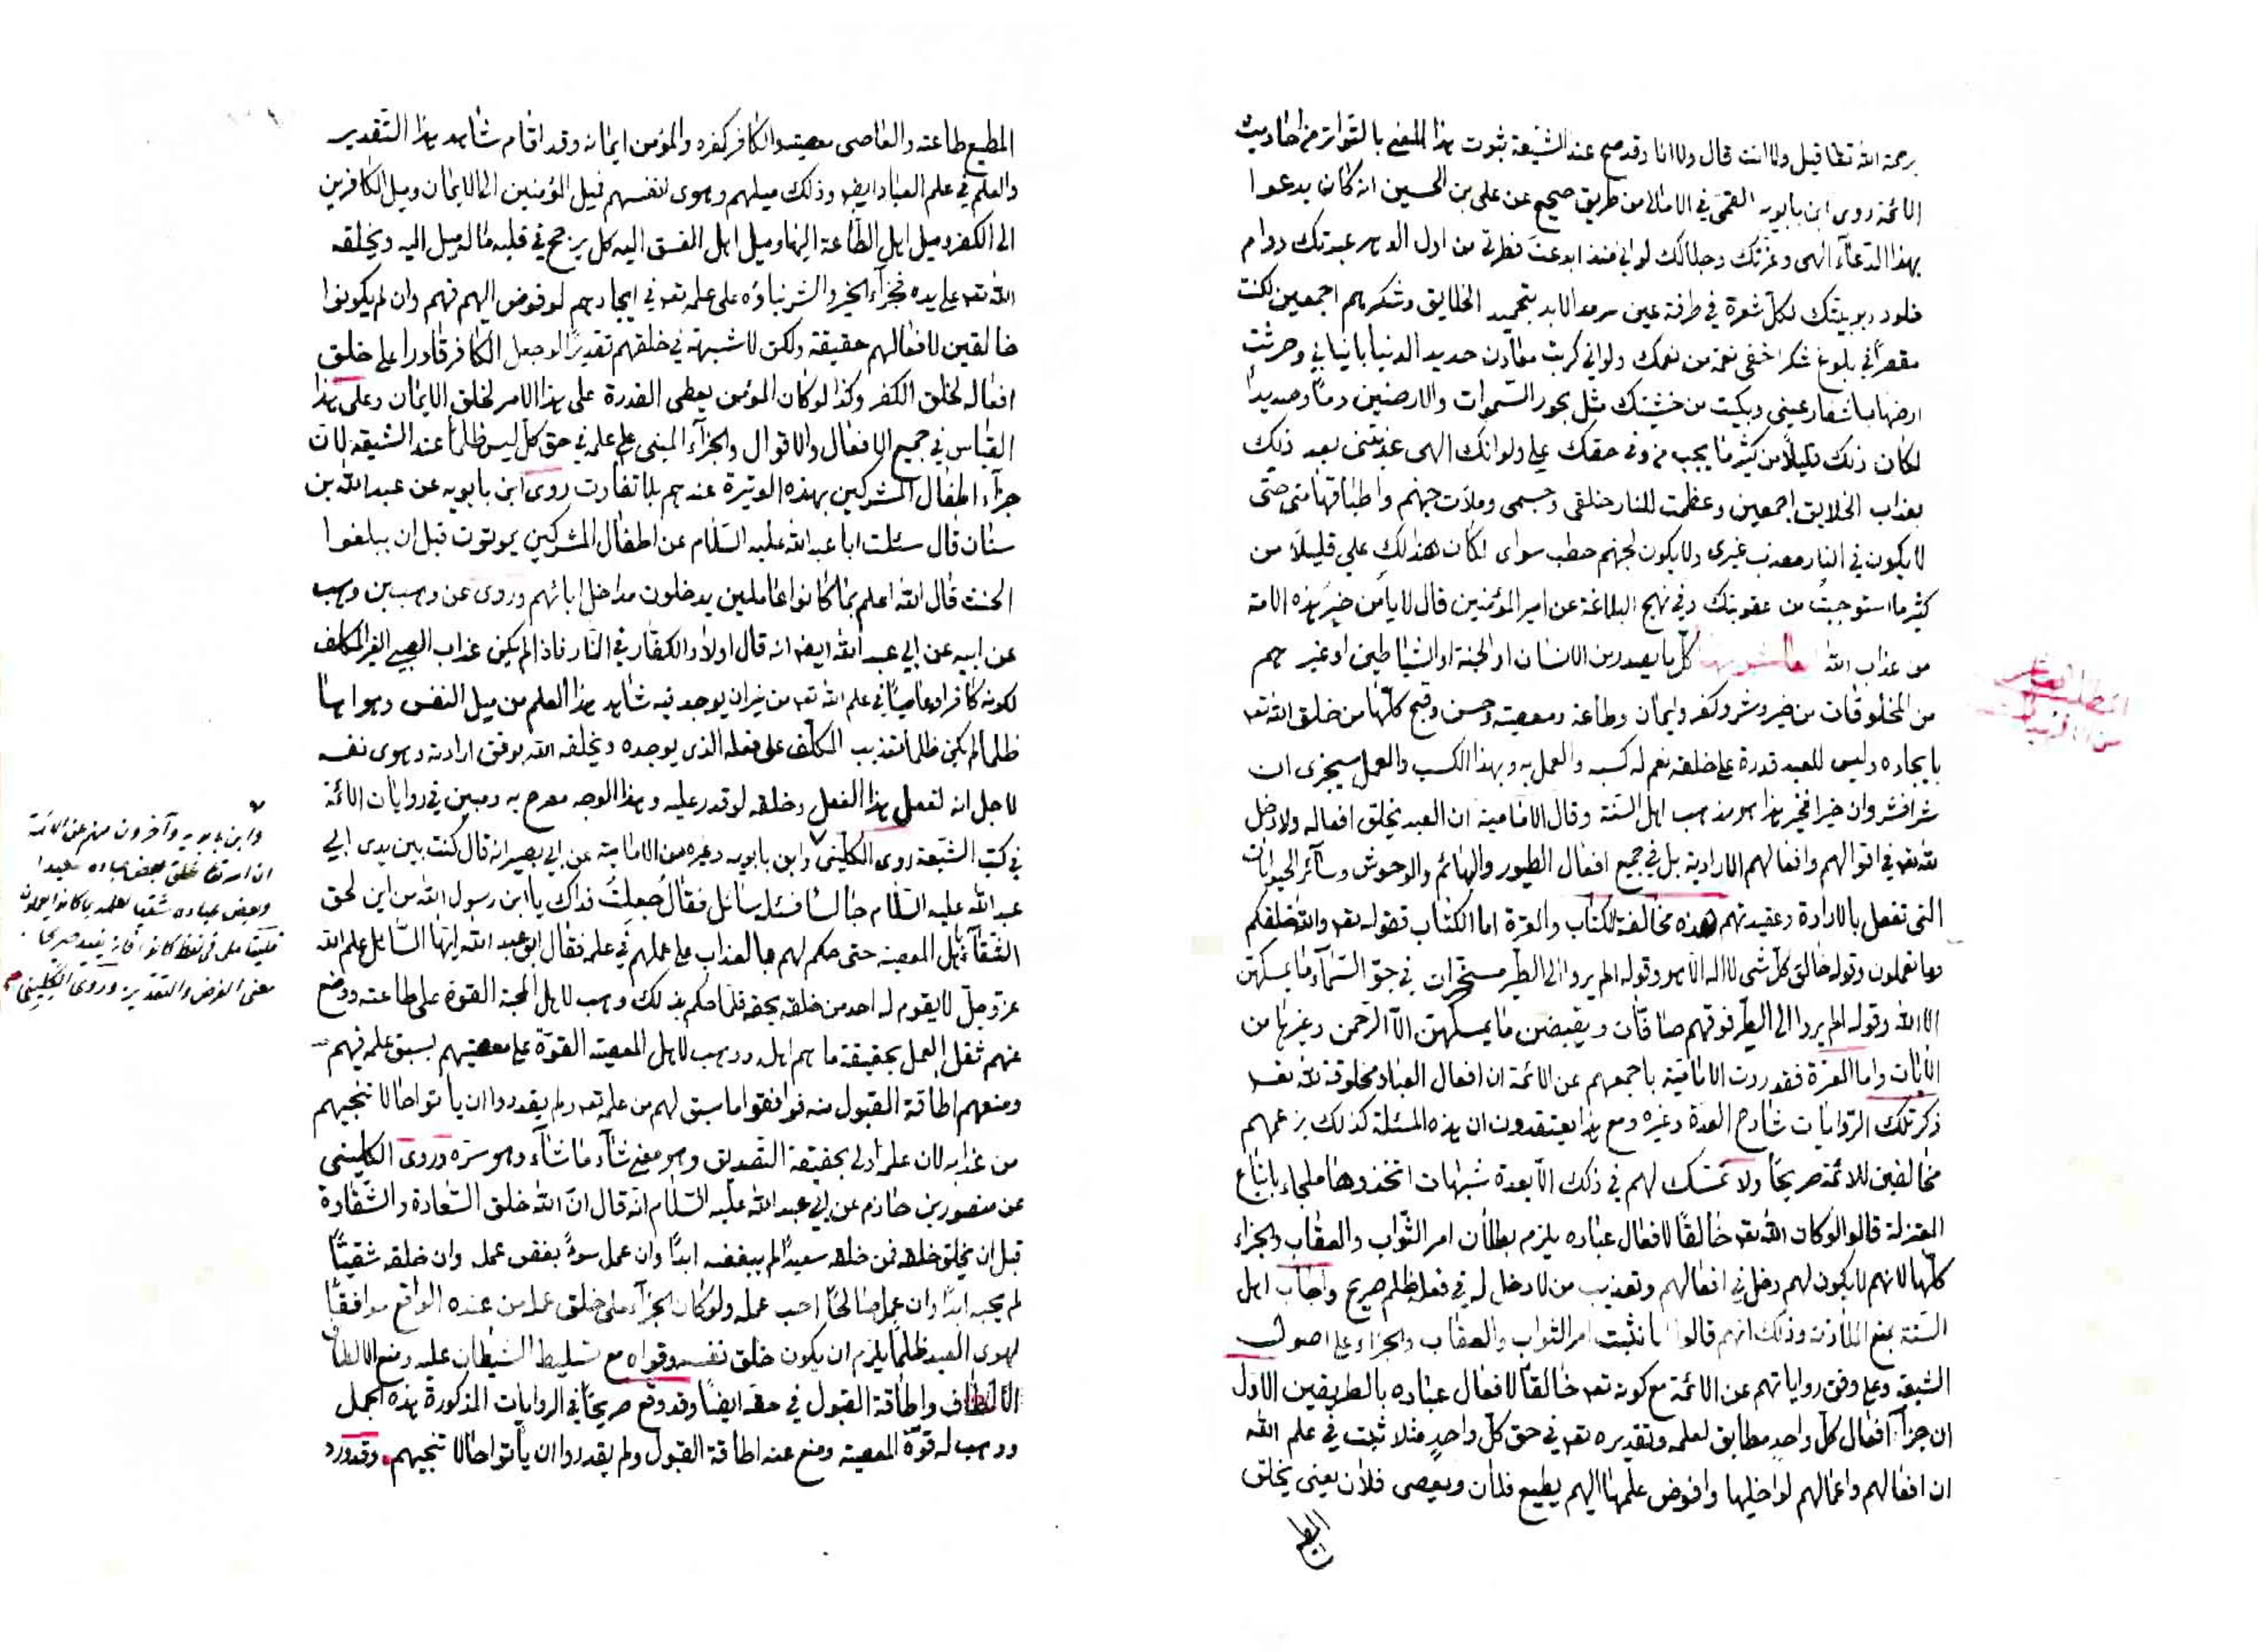 برحمة الله تعا قيل ولا انت قال ولا انا وقد صح عند الشيعة ثبوت هذا المعنى بالتواتر من احاديث
الائمة روى ابن بابويه القمى في الامالى من طريق صحيح عن على بن الحسين انه كان يدعوا
بهذا الدعاء الهى وعزتك وجلالك لو اني منذ ابدعت فطرتي من اول الدهر عبدتك دوام
خلود ربوبيتك بكل شعرة في طرفة عين سرمد الابد بتحميد الخلايق وشكرهم اجمعين لكنت
مقصرا في بلوغ شكر اخفى نعمة من نعمك ولو اني كربت معادن حديد الدنيا بانيابي وحرثت
ارضها باشفار عيني وبكيت من خشيتك مثل بحور السموات والارضين دما وصديدا
لكان ذلك قليلا من كثير ما يجب من وفي حقك علي ولو انك الهى عذبتنى بعد ذلك
بعذاب الخلايق اجمعين وعظمت للنار خلقى وجسمى وملأت جهنم واطباقها مني حتى
لا يكون في النار معذب غيرى ولا يكون لجهنم حطب سواى لكان هذا لك علي قليلا من
كثير ما استوجبت من عقوبتك وفي نهج البلاغة عن امير المؤمنين قال لا يأمن خير هذه الامة
من عذاب الله كل ما يصدر من الانسان او الجنة او الشياطين او غيرهم
من المخلوقات من خير وشر وكفر وايمان وطاعة ومعصية وحسن وقبح كلها من خلق الله تعه
بايجاده وليس للعبد قدرة على خلقه نعم له كسبه والعمل به وبهذا الكسب والعمل سيجزى ان
شرا فشر وان خيرا فخير هذا هو مذهب اهل السنة وقال الامامية ان العبد يخلق افعاله ولا دخل
لله تعه في اقوالهم وافعالهم الارادية بل في جميع افعال الطيور والبهائم والوحوش وسائر الحيوانات
التى تفعل بالارادة وعقيدتهم هذه مخالفة للكتاب والعترة اما الكتاب فقوله تعه والله خلقكم
وما تعملون وقوله خالق كل شى لا اله الا هو وقوله الم يروا الى الطير مسخرات في جو السماء ما يمسكهن
الا الله وقوله الم يروا الى الطير فوقهم صافات ويقبضن ما يمسكهن الا الرحمن وغيرها من
الايات واما العترة فقد روت الامامية باجمعهم عن الائمة ان افعال العباد مخلوقة لله تعه
ذكر تلك الروايات شارح العدة وغيره ومع هذا يعتقدون ان هذه المسئلة كذلك بزعمهم
مخالفين للائمة صريحا ولا تمسك لهم في ذلك الا بعدة شبهات اتخذوها ملجاء باتباع
المعتزلة قالوا لو كان الله تعه خالقا لافعال عباده يلزم بطلان امر الثواب والعقاب والجزاء
كلها لانهم لا يكون لهم دخل في افعالهم وتعذيب من لا دخل له في فعل ظلم صريح واجاب اهل
السنة بمنع الملازمة وذلك انهم قالوا انا نثبت امر الثواب والعقاب والجزاء على اصول
الشيعة وعلى وفق رواياتهم عن الائمة مع كونه تعه خالقا لافعال عباده بالطريقين الاول
ان جزاء افعال كل واحد مطابق لعلمه وتقديره تعه في حق كل واحد مثلا ثبت في علم الله
ان افعالهم واعمالهم لو اخليها وافوض علمها اليهم يطيع فلان ويعصى فلان يعنى يخلق
المطيع
المطيع طاعته والعاصى معصيته والكافر كفره والمؤمن ايمانه وقد اقام شاهد هذا التقدير
والعلم في علم العباد ايضه وذلك ميلهم وهوى انفسهم فميل المؤمنين الى الايمان وميل الكافرين
الى الكفر وميل اهل الطاعة اليها وميل اهل الفسق اليه كل يرجح في قلبه ما له ميل اليه ويخلقه
الله تعه على يده فجزاء الخير والشر بناؤه على علمه تعه في ايجادهم لو فوض اليهم فهم وان لم يكونوا
خالقين لافعالهم حقيقة ولكن لا شبهة في خلقهم تقديرا لو جعل الكافر قادرا على خلق
افعاله لخلق الكفر وكذا لو كان المؤمن يعطى القدرة على هذا الامر لخلق الايمان وعلى هذا
القياس في جميع الافعال والاقوال والجزاء المبنى على علمه في حق كل ليس ظلما عند الشيعة لان
جزاء اطفال المشركين بهذه الوتيرة عندهم بلا تفاوت روى ابن بابويه عن عبد الله بن
سنان قال سئلت ابا عبد الله عليه السلام عن اطفال المشركين يموتون قبل ان يبلغوا
الحنث قال الله اعلم بما كانوا عاملين يدخلون مداخل ابائهم وروى عن وهب بن وهب
عن ابيه عن ابي عبد الله ايضه انه قال اولاد الكفار في النار فاذا لم يكن عذاب الصبي الغير المكلف
لكونه كافرا وعاصيا في علم الله تعه من غير ان يوجد فيه شاهد هذا العلم من ميل النفس وهواها
ظلما لم يكن ظلما تعذيب المكلف على فعله الذى يوجده ويخلقه الله بوفق ارادته وهوى نفسه
لاجل انه لفعل هذا الفعل وخلقه لو قدر عليه وهذا الوجه مصرح به ومبين في روايات الائمة
في كتب الشيعة روى الكليني وابن بابويه وغيره من الامامية عن ابي بصير انه قال كنت بين يدى ابي
عبد الله عليه السلام جالسا فسئله سائل فقال جعلت فداك يا ابن رسول الله من اين لحق
الشقاء باهل المعصية حتى حكم لهم بالعذاب على عملهم في علمه فقال ابو عبد الله ايها السائل علم الله
عز وجل لا يقوم له احد من خلقه بحقه فلما حكم بذلك وهب لاهل المحبة القوة على طاعته ووضع
عنهم ثقل العمل بحقيقة ما هم اهله ووهب لاهل المعصية القوة على معصيتهم بسبق علمه فيهم
ومنعهم اطاقة القبول منه فوافقوا ما سبق لهم من علمه تعه ولم يقدروا ان يأتوا حالا تنجيهم
من عذابه لان علمه اولى بحقيقة التصديق وهو معنى شاء ما شاء وهو سره وروى الكليني
عن منصور بن حازم عن ابي عبد الله عليه السلام انه قال ان الله خلق السعادة والشقاوة
قبل ان يخلق خلقه فمن خلقه سعيدا لم يبغضه ابدا وان عمل سوءا بغض عمله وان خلقه شقيا
لم يحبه ابدا وان عمل صالحا احب عمله ولو كان الجزاء على خلق عمله من عنده الواقع موافقا
لهوى العبد ظلما يلزم ان يكون خلق نفسه وقواه مع تسليط الشيطان عليه ومنع الالطاف
الالطاف واطاقة القبول في حقه ايضا وقد وقع صريحا في الروايات المذكورة بهذه الجمل
ووهب له قوة المعصية ومنع عنه اطاقة القبول ولم يقدروا ان يأتوا حالا تنجيهم وقد ورد
وابن بابويه وآخرون منهم عن الائمة
ان الله تعا خلق بعض عباده سعيدا
وبعض عباده شقيا لعلمه بما كانوا يعملون
معنى الفرض والتقدير وروى الكليني